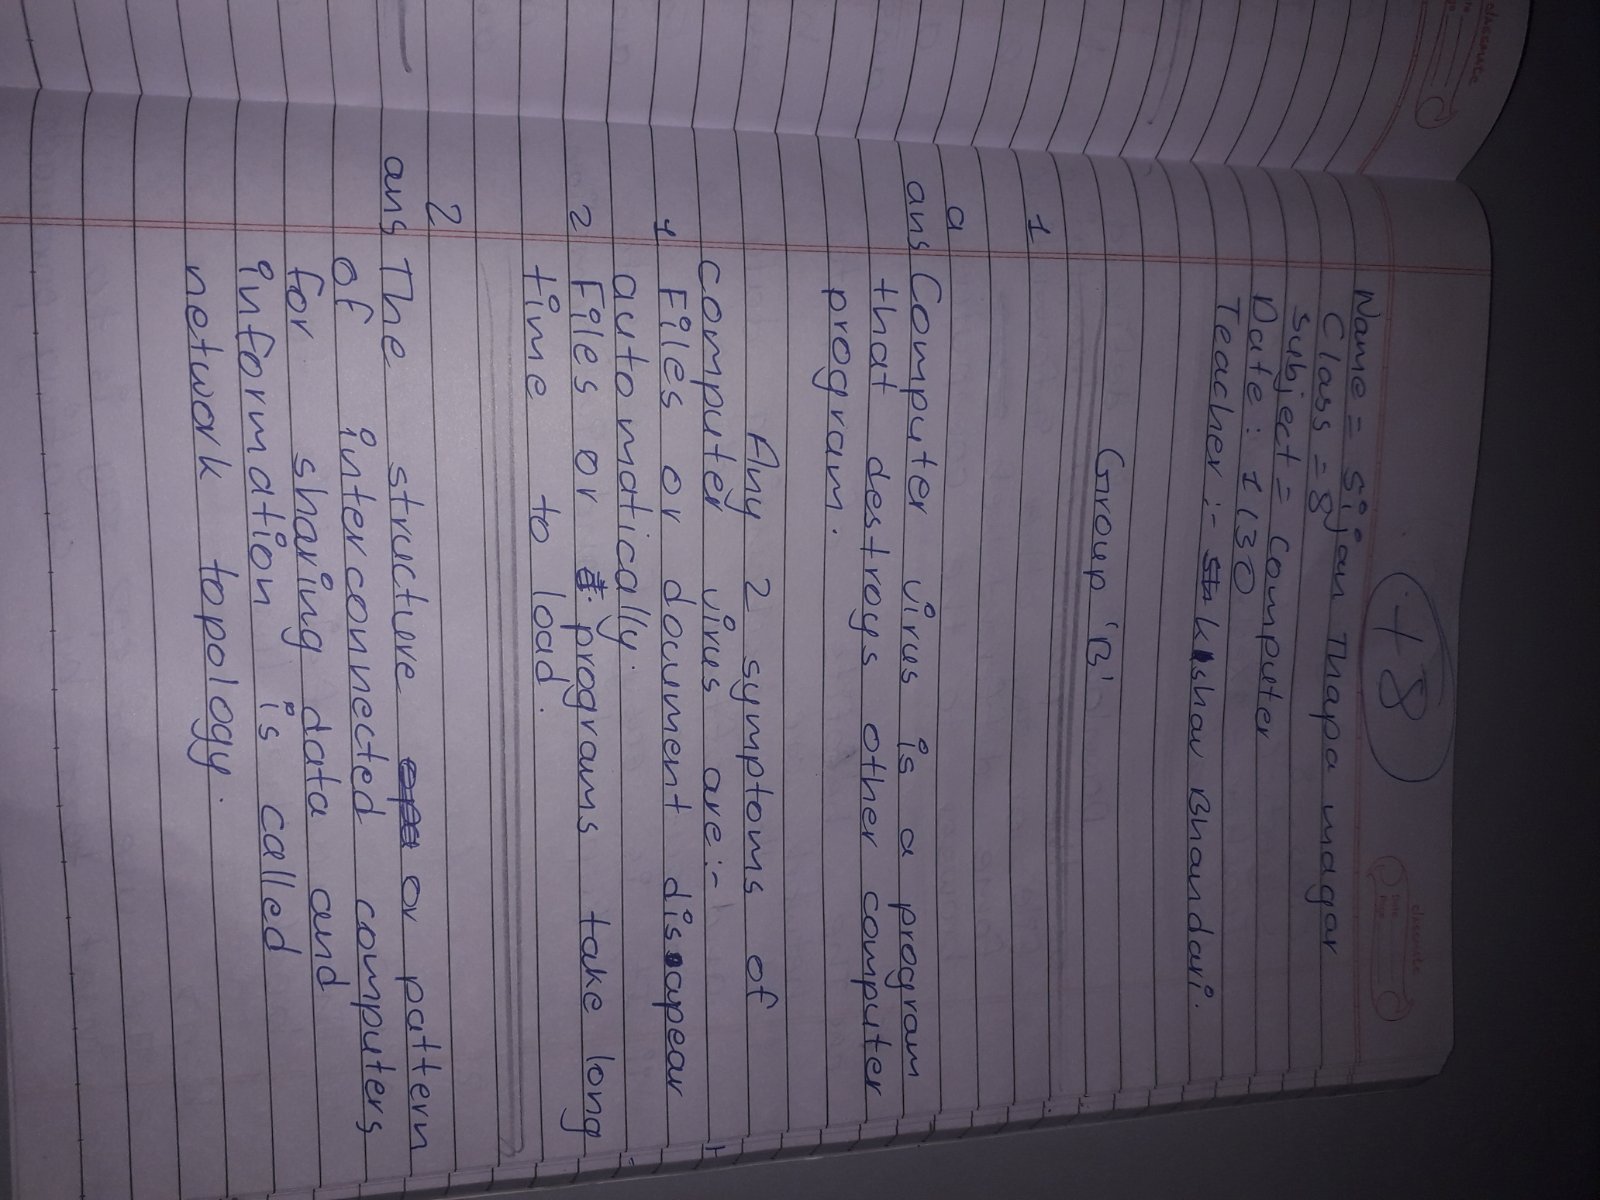 +8
classmate
Date
Page
Name = Sijan Thapa magar
Class = 8
Subject = Computer
Date : 1130
Teacher :- Kishav Bhandari.
Group 'B'
1
a
ans Computer virus is a program
that destroys other computer
program.
Any 2 symptoms of
computer virus are:-
1 Files or document disapear
automatically.
2 Files or programs take long
time to load.
2
ans The structure or pattern
of interconnected computers
for sharing data and
information is called
network topology.